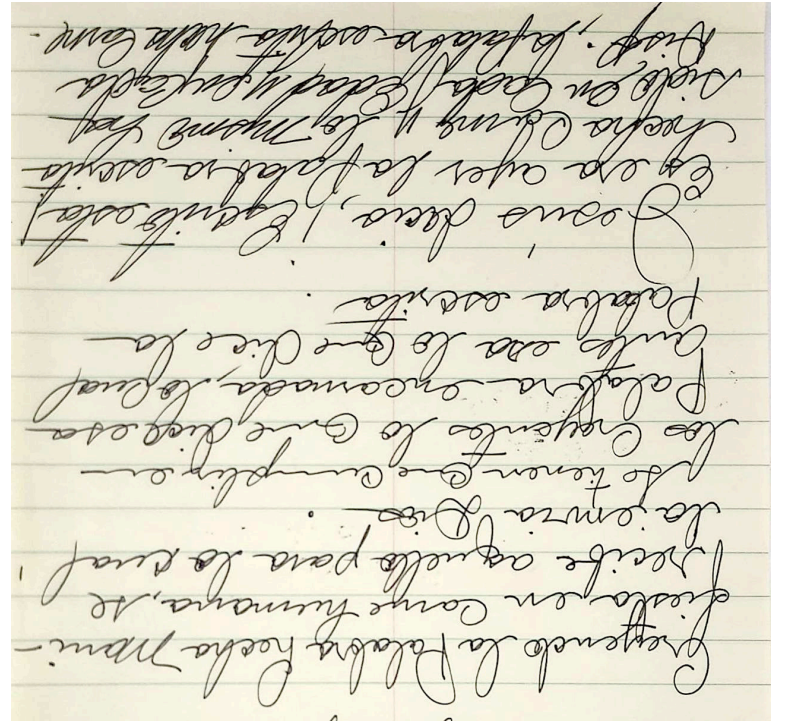 Creyendo la Palabra hecha mani-
fiesta en carne humana, se
recibe aquello para lo cual
la envia Dios.
Se tienen que cumplir en
los creyentes lo que dice esa
Palabra encarnada, lo cual
antes era lo que dice la
Palabra escrita.
Jesús decia, ¡Escrito está!
Es era ayer la Palabra escrita
hecha carne y lo mismo ha
sido en cada Edad y en cada
Disp.; la palabra escrita hecha carne.